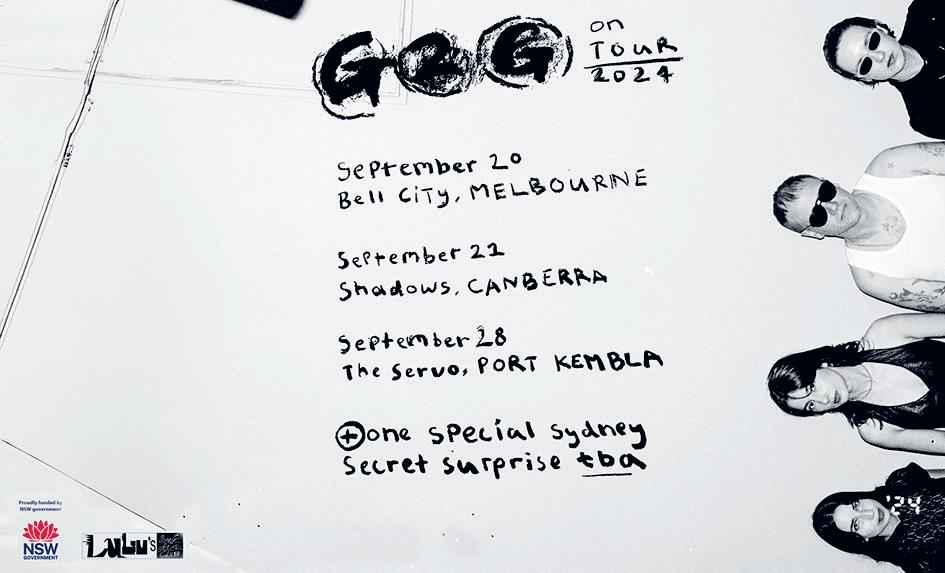 G2G
on
TOUR
2024
September 20
Bell City, MELBOURNE
September 21
Shadows, CANBERRA
September 28
The Servo, PORT KEMBLA
+ one special Sydney
secret surprise tba
Proudly funded by
NSW government
NSW
GOVERNMENT
LuLu's